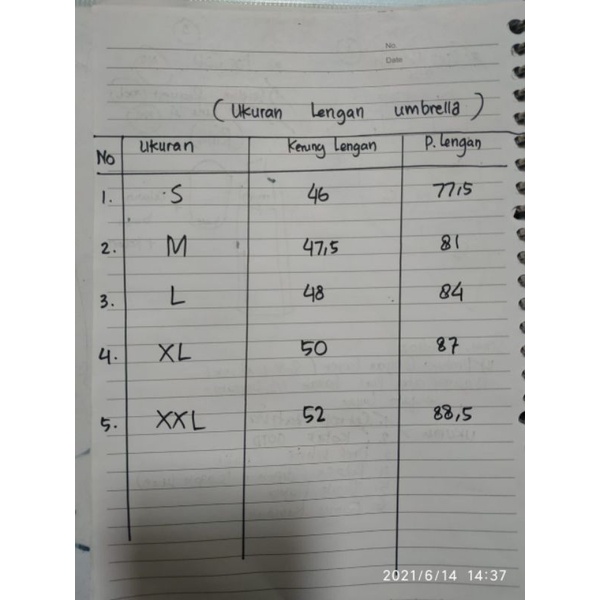 No.
Date
( Ukuran Lengan umbrella )
No Ukuran Kerung Lengan P. Lengan
1. S 46 77,5
2. M 47,5 81
3. L 48 84
4. XL 50 87
5. XXL 52 88,5
2021/6/14 14:37